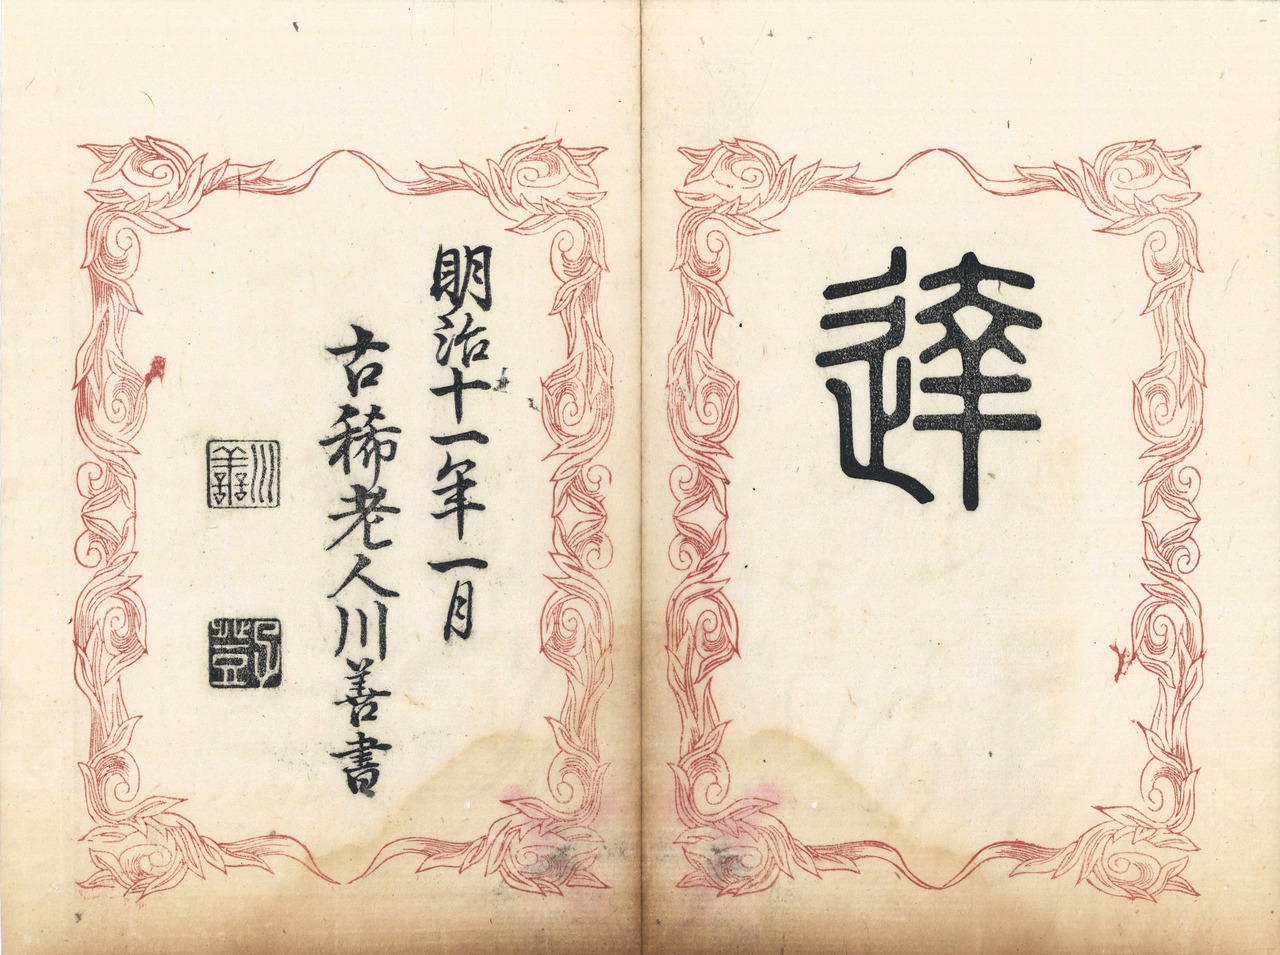 達
明治十一年一月
古稀老人川善書
川譱